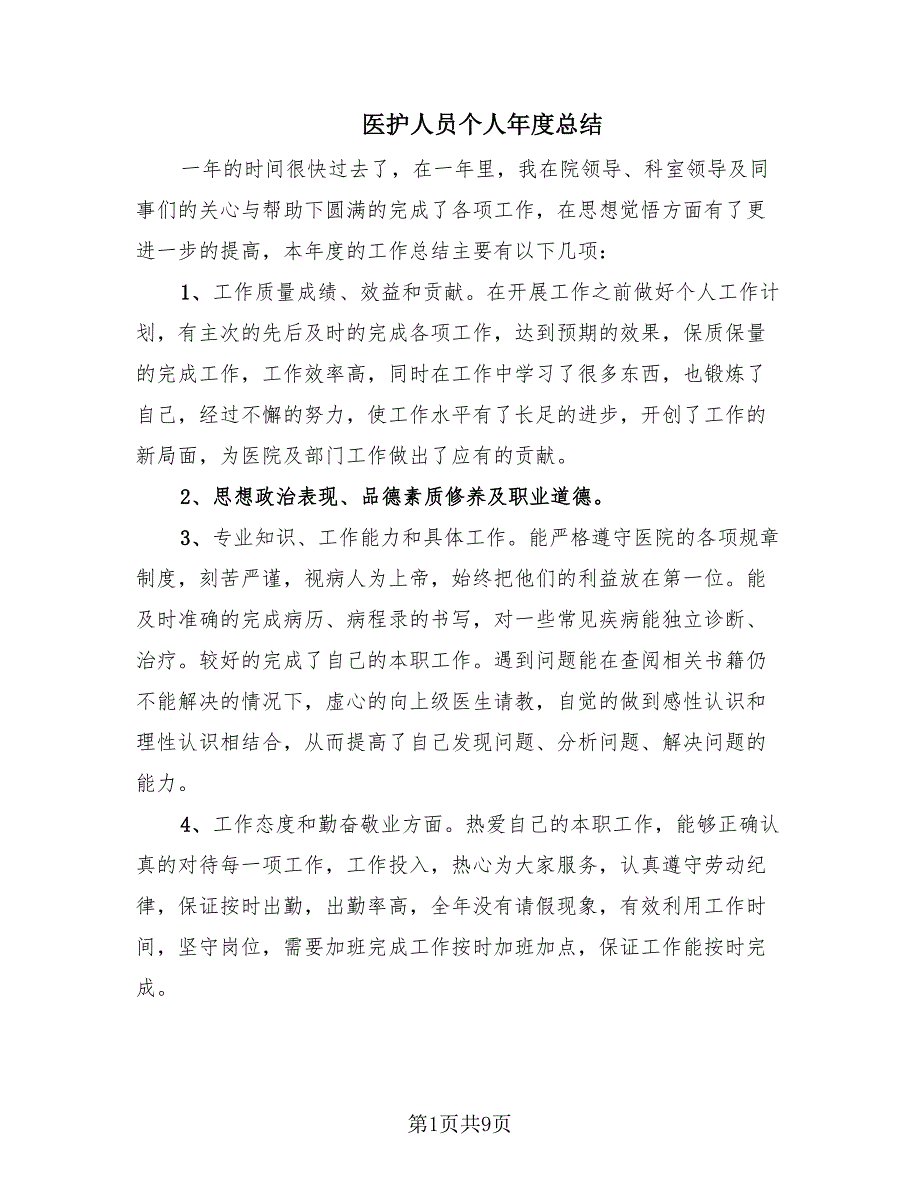 医护人员个人年度总结
一年的时间很快过去了，在一年里，我在院领导、科室领导及同
事们的关心与帮助下圆满的完成了各项工作，在思想觉悟方面有了更
进一步的提高，本年度的工作总结主要有以下几项：
1、工作质量成绩、效益和贡献。在开展工作之前做好个人工作计
划，有主次的先后及时的完成各项工作，达到预期的效果，保质保量
的完成工作，工作效率高，同时在工作中学习了很多东西，也锻炼了
自己，经过不懈的努力，使工作水平有了长足的进步，开创了工作的
新局面，为医院及部门工作做出了应有的贡献。
2、思想政治表现、品德素质修养及职业道德。
3、专业知识、工作能力和具体工作。能严格遵守医院的各项规章
制度，刻苦严谨，视病人为上帝，始终把他们的利益放在第一位。能
及时准确的完成病历、病程录的书写，对一些常见疾病能独立诊断、
治疗。较好的完成了自己的本职工作。遇到问题能在查阅相关书籍仍
不能解决的情况下，虚心的向上级医生请教，自觉的做到感性认识和
理性认识相结合，从而提高了自己发现问题、分析问题、解决问题的
能力。
4、工作态度和勤奋敬业方面。热爱自己的本职工作，能够正确认
真的对待每一项工作，工作投入，热心为大家服务，认真遵守劳动纪
律，保证按时出勤，出勤率高，全年没有请假现象，有效利用工作时
间，坚守岗位，需要加班完成工作按时加班加点，保证工作能按时完
成。
第1页共9页